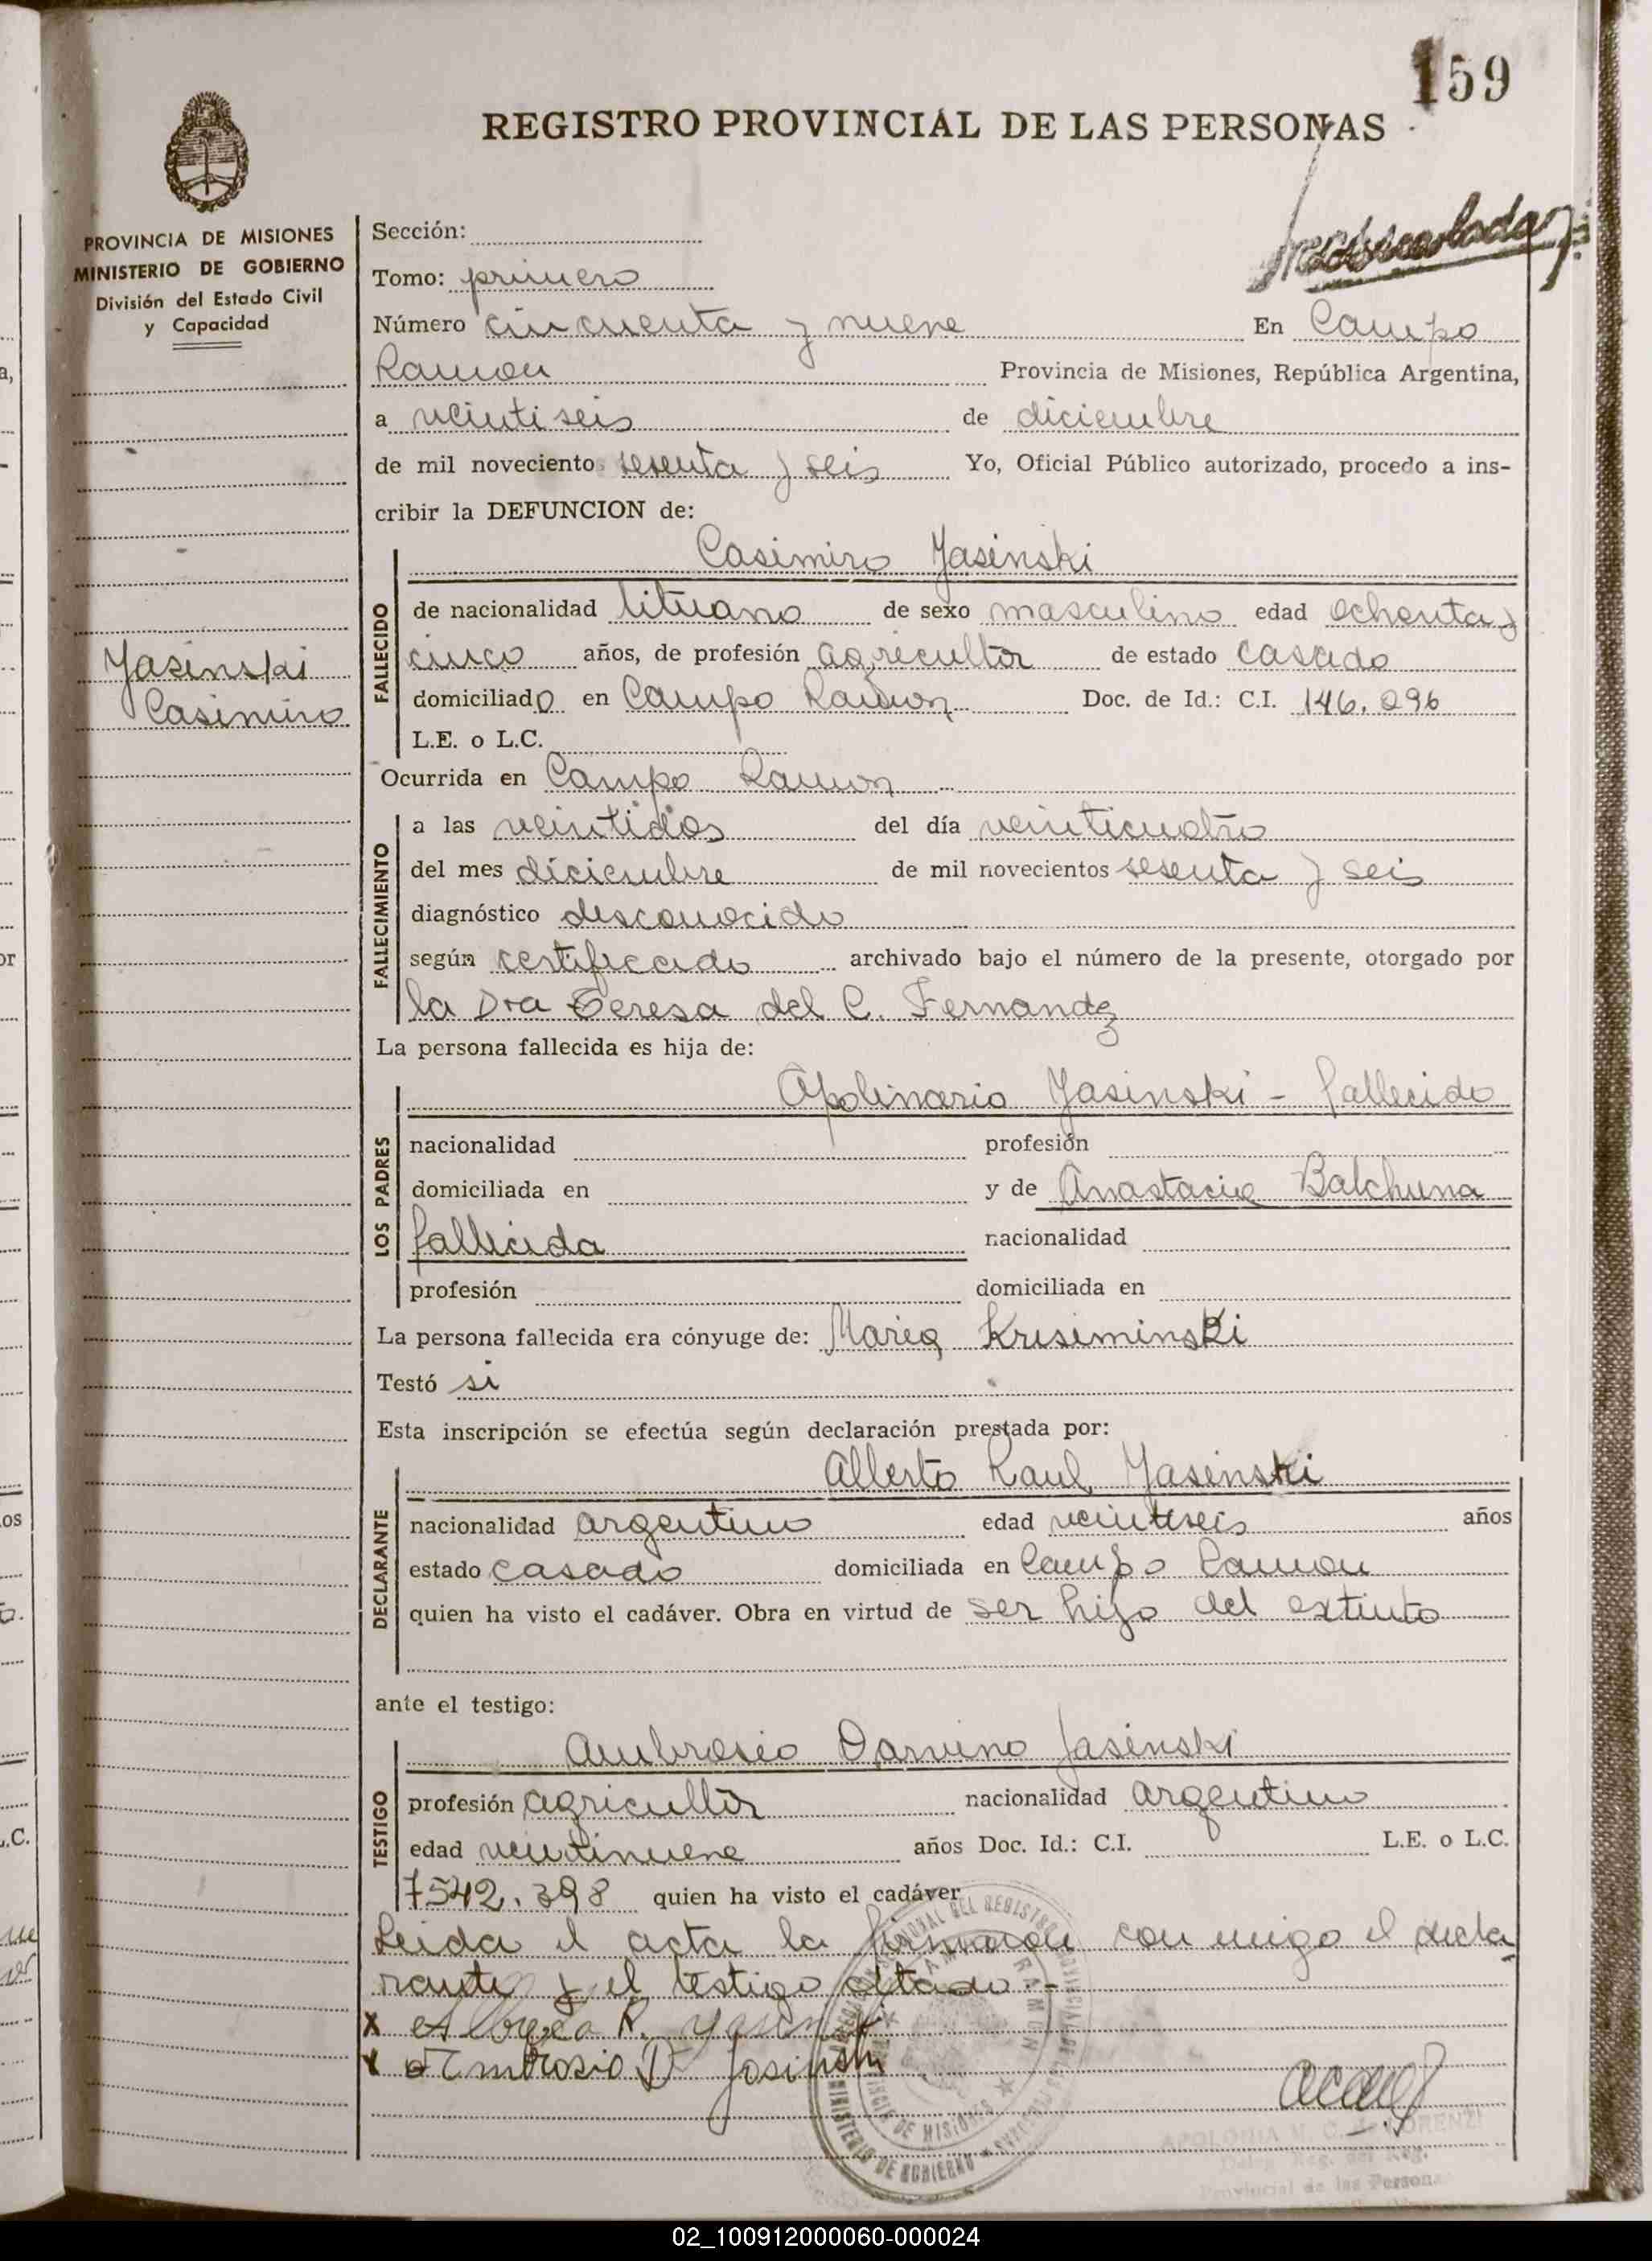 159
REGISTRO PROVINCIAL DE LAS PERSONAS
PROVINCIA DE MISIONES
MINISTERIO DE GOBIERNO
División del Estado Civil
y Capacidad
Yasinski
Casimiro
Sección:
Tomo: primero
Número cincuenta y nueve En Campo
Ramon Provincia de Misiones, República Argentina,
a veintiseis de diciembre
de mil noveciento sesenta y seis Yo, Oficial Público autorizado, procedo a ins-
cribir la DEFUNCION de:
Casimiro Yasinski
FALLECIDO
de nacionalidad lituano de sexo masculino edad ochenta y
cinco años, de profesión agricultor de estado casado
domiciliado en Campo Ramon Doc. de Id.: C.I. 146.296
L.E. o L.C.
Ocurrida en Campo Ramon
FALLECIMIENTO
a las veintidos del día veinticuatro
del mes diciembre de mil novecientos sesenta y seis
diagnóstico desconocido
según certificado archivado bajo el número de la presente, otorgado por
la Dra Teresa del C. Fernandez
La persona fallecida es hija de:
Apolinario Yasinski - fallecido
LOS PADRES
nacionalidad profesión
domiciliada en y de Anastacia Balchuna
fallecida nacionalidad
profesión domiciliada en
La persona fallecida era cónyuge de: Maria Kresiminski
Testó si
Esta inscripción se efectúa según declaración prestada por:
Alberto Raul Yasinski
DECLARANTE
nacionalidad argentino edad veintiseis años
estado casado domiciliada en Campo Ramon
quien ha visto el cadáver. Obra en virtud de ser hijo del extinto
ante el testigo:
Ambrosio Darvino Jasinski
TESTIGO
profesión agricultor nacionalidad argentino
edad veintinueve años Doc. Id.: C.I. L.E. o L.C.
7542.398 quien ha visto el cadáver
Leida el acta la firmaron conmigo el decla
rante y el testigo citado -
x Alberto R. Yasinski
x Ambrosio D Josinski
MINISTERIO DE GOBIERNO
PROVINCIA DE MISIONES
02_100912000060-000024